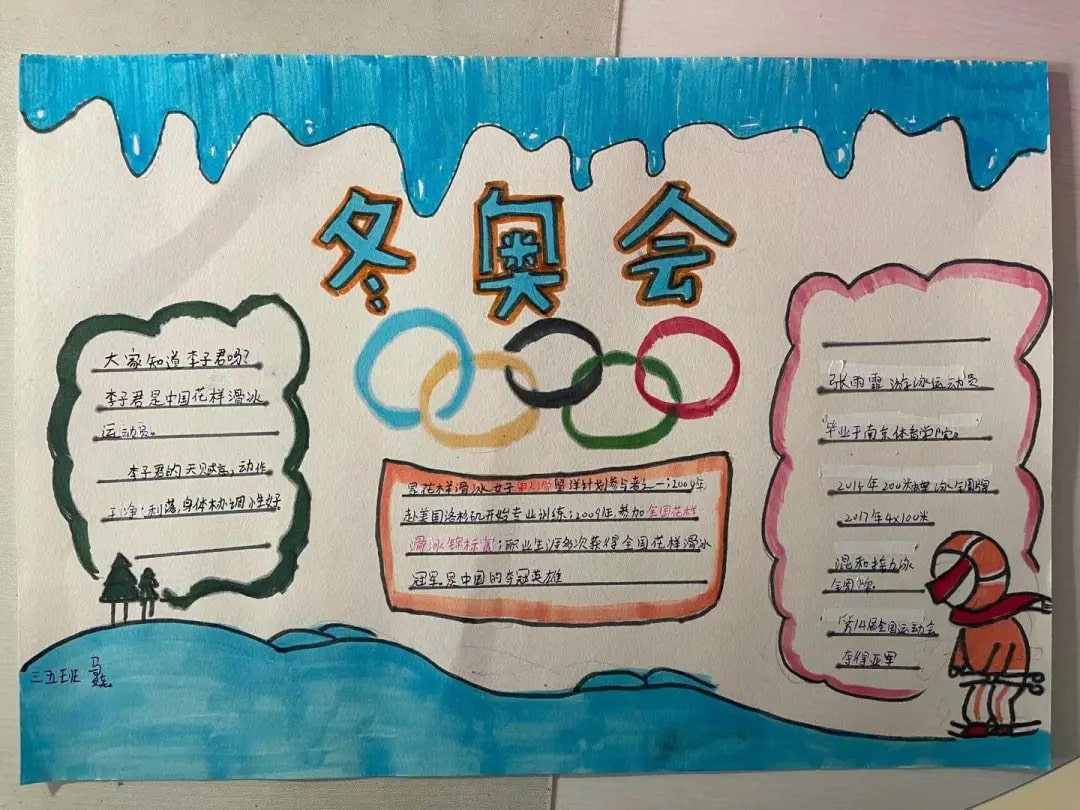 冬奥会
大家知道李子君吗?
李子君是中国花样滑冰
运动员。
李子君的天赋高,动作
干净利落,身体协调性好
界花样滑冰女子单人滑留洋计划参与者之一;2009年
赴美国洛杉矶开始专业训练;2009年,参加全国花样
滑冰锦标赛;职业生涯多次获得全国花样滑冰
冠军.是中国的夺冠英雄
张雨霏游泳运动员
毕业于南京体育学院。
2015年200米蝶泳金牌
2017年4×100米
混和接力泳
金牌
第14届全国运动会
夺得亚军
三五班